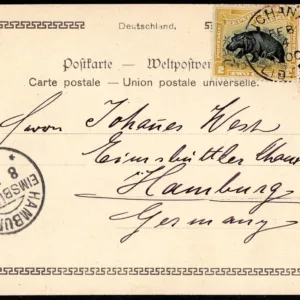 Deutschland.
Postkarte — Weltpostver
Carte postale — Union postale universelle.
CHAN
FEB
Herrn Johañes West
Eimsbüttler Chau
Hamburg
Germany
HAMBU
EIMSBÜ
8